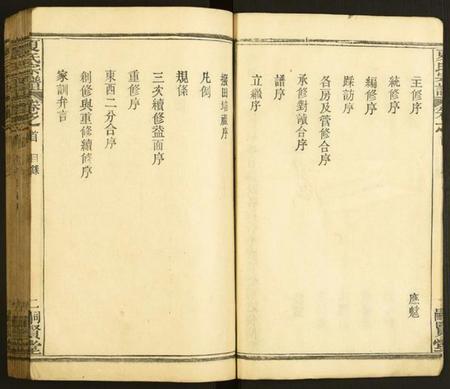 主修序
應魁
統修序
編修序
踩訪序
各房及管修合序
承修對讀合序
譜序
立繼序
撥田培祠序
凡例
規條
三次續修盋面序
重修序
東西二分合序
創修與重修續修序
家訓弁言
夏氏宗譜
卷之首
目錄
二
嗣賢堂
嗣賢堂